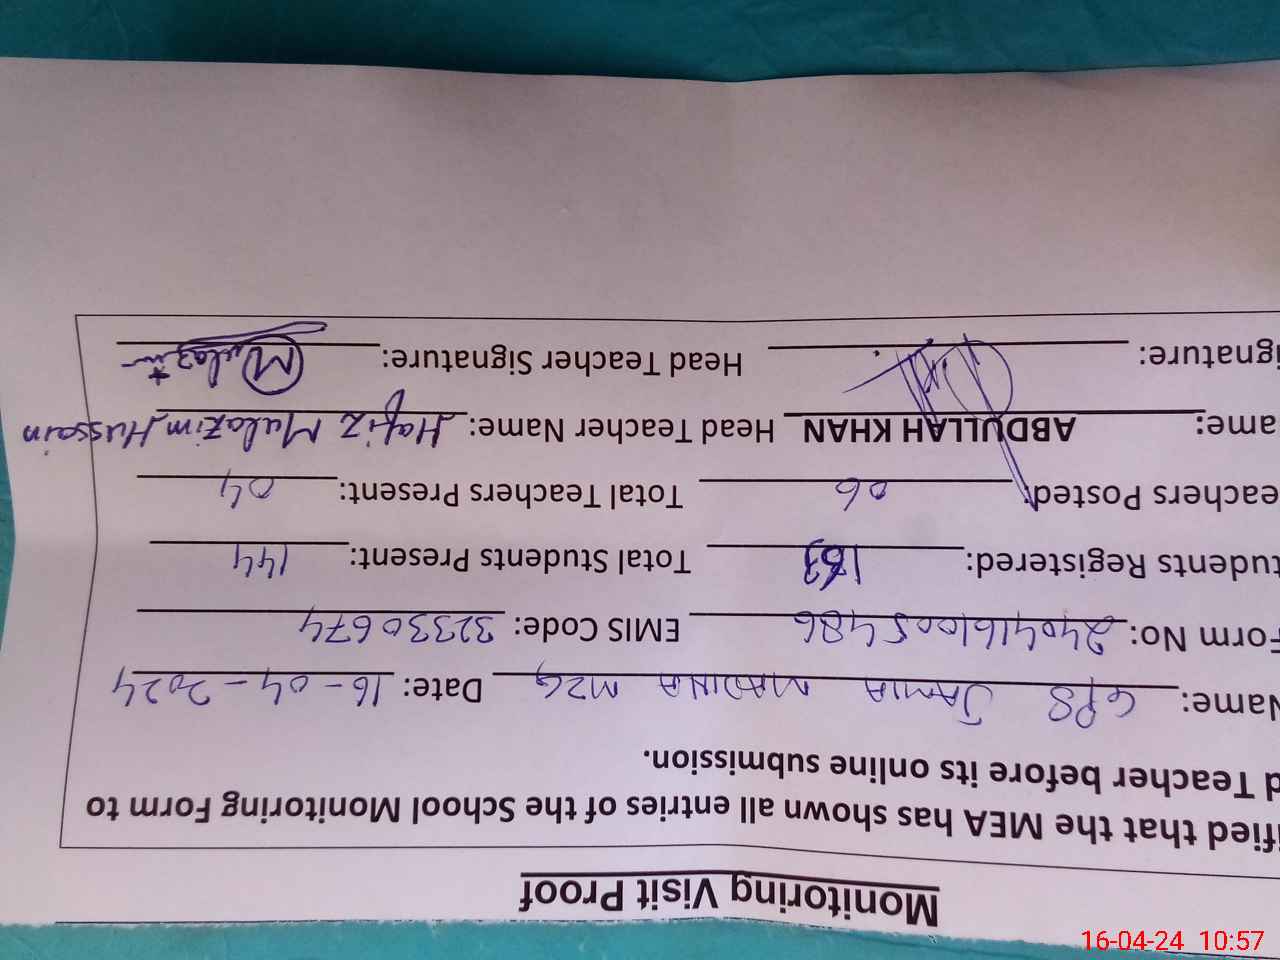 Monitoring Visit Proof
ified that the MEA has shown all entries of the School Monitoring Form to
d Teacher before its online submission.
Name: GPS JAMIA MADINA MZG Date: 16-04-2024
Form No: 2404161005486 EMIS Code: 32330674
tudents Registered: Total Students Present: 144
eachers Posted: 06 Total Teachers Present: 04
ame: ABDULLAH KHAN Head Teacher Name: Hafiz Mulazim Hussain
ignature: Head Teacher Signature: Mulazim
16-04-24 10:57